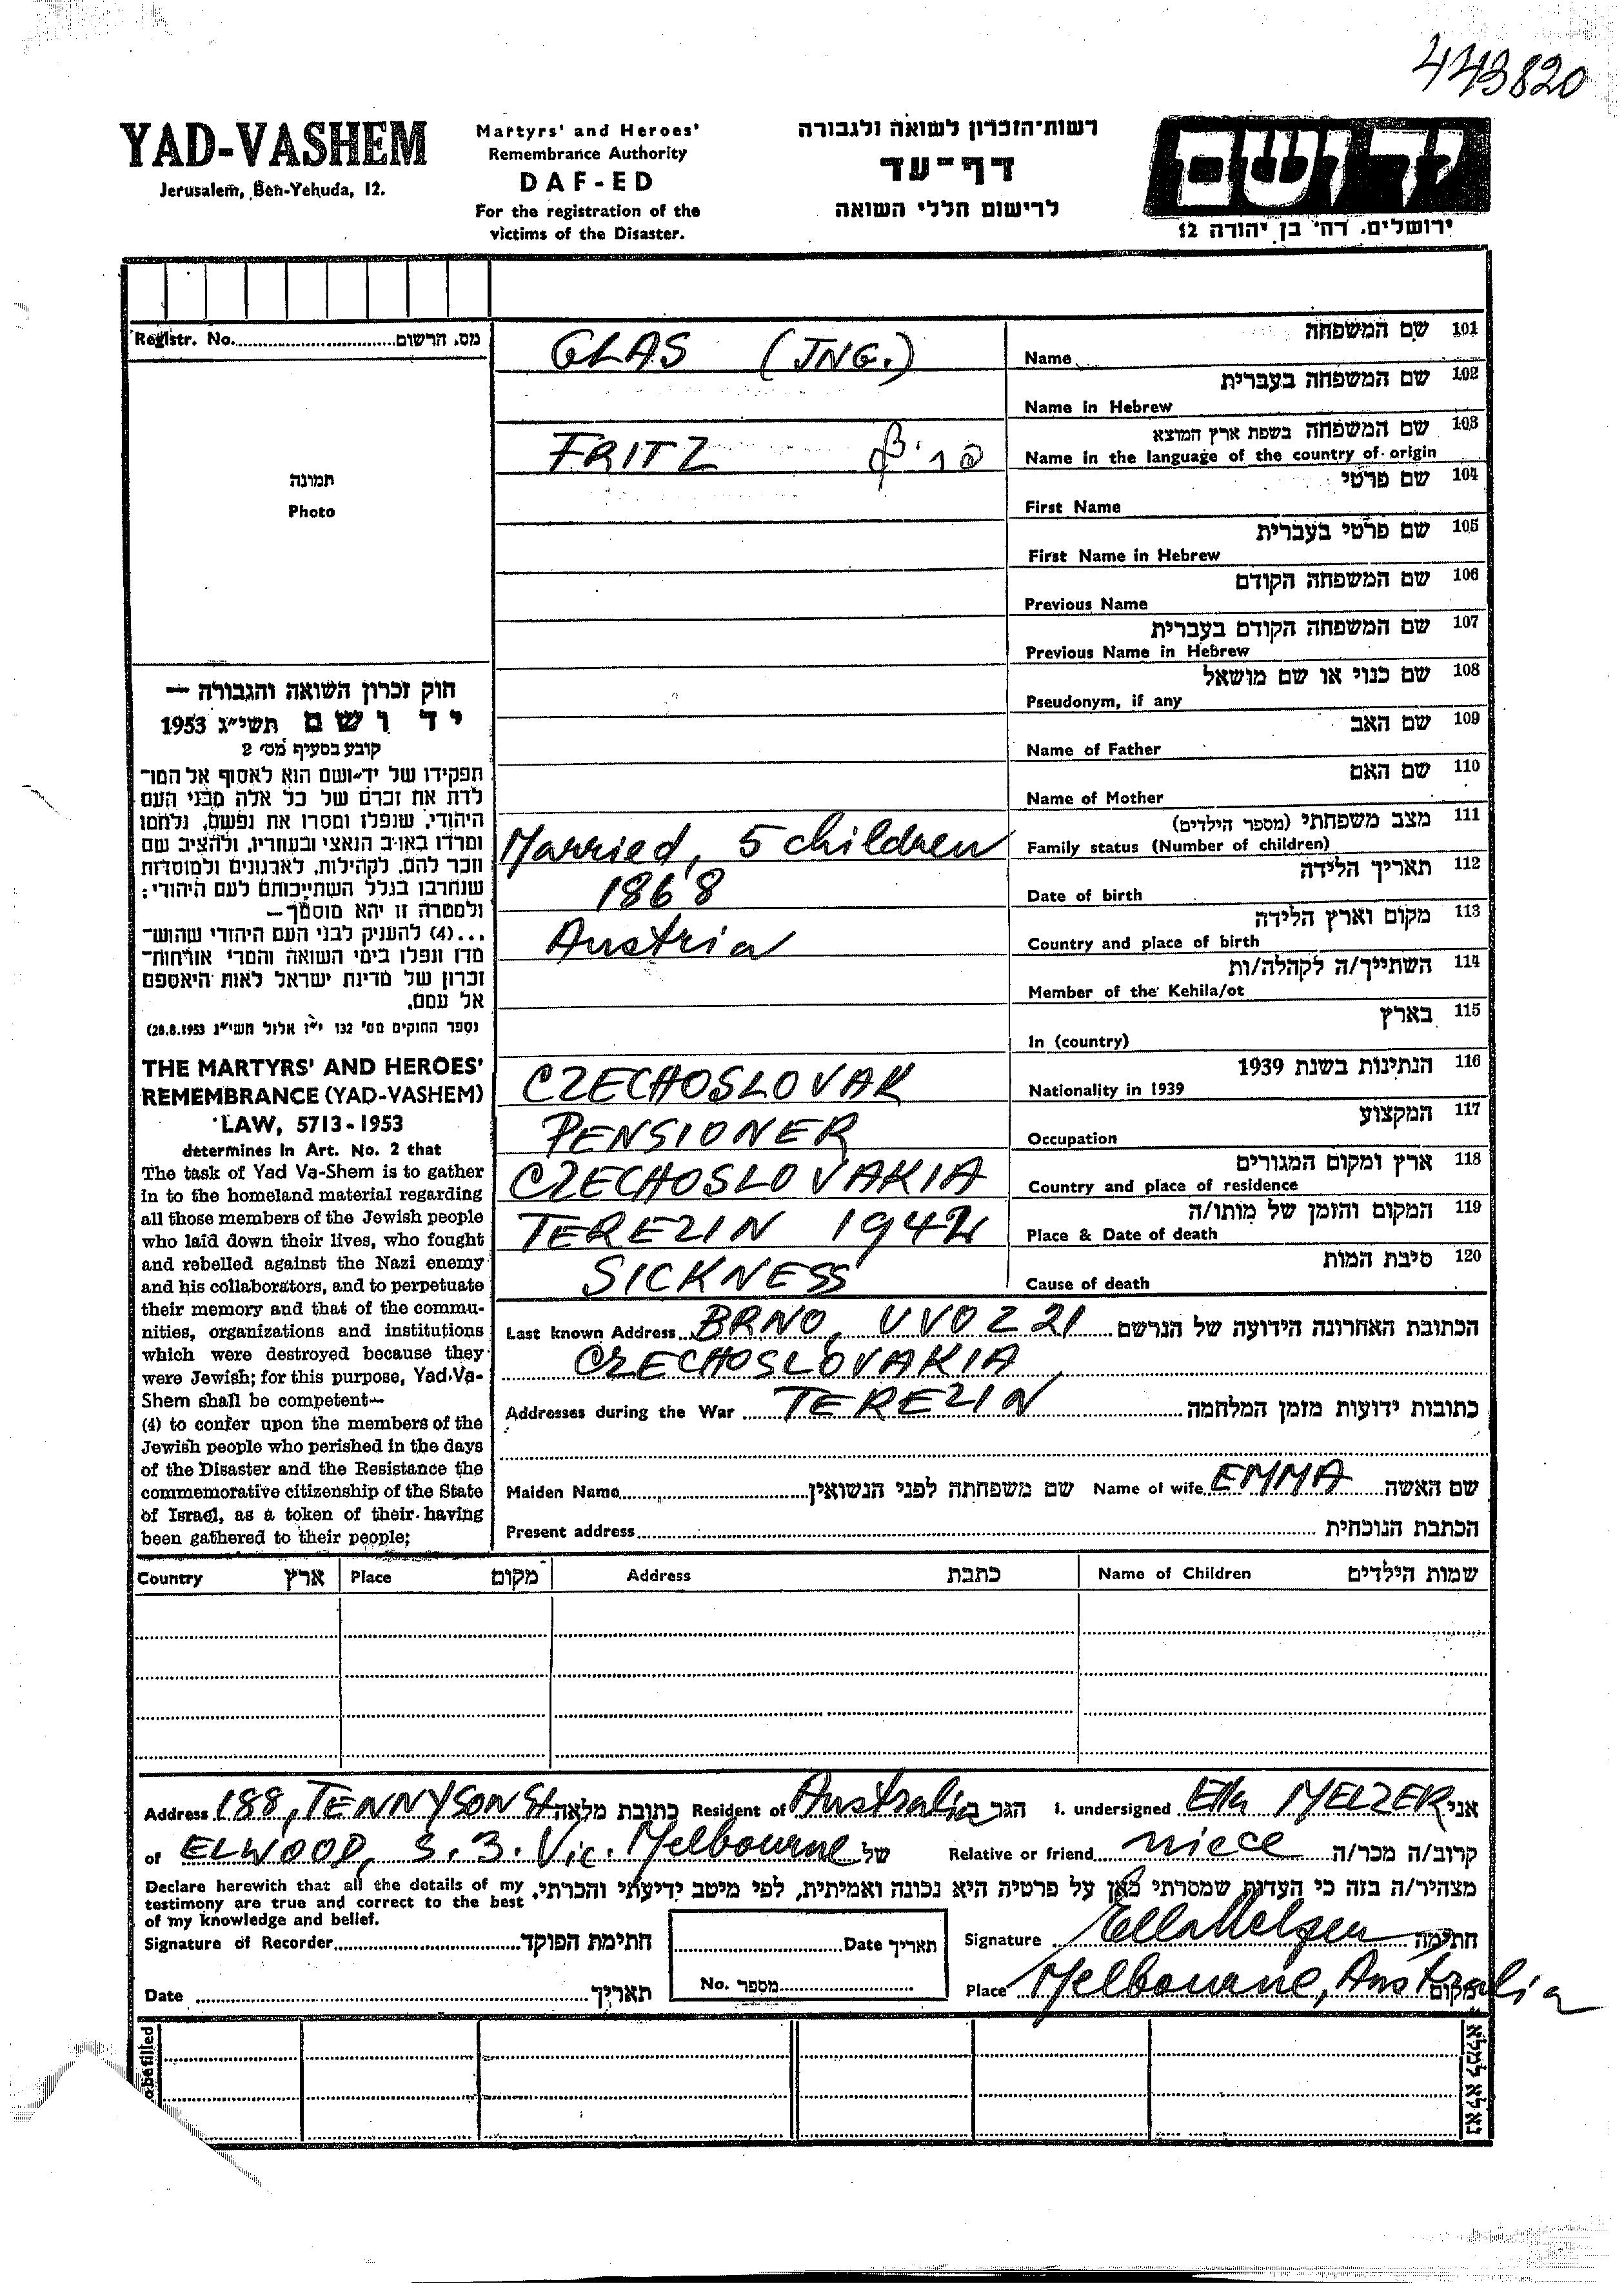 443820
YAD-VASHEM
Jerusalem, Ben-Yehuda, 12.
Martyrs' and Heroes'
Remembrance Authority
DAF-ED
For the registration of the
victims of the Disaster.
רשות-הזכרון לשואה ולגבורה
דף-עד
לרישום חללי השואה
יד ושם
ירושלים, רח' בן יהודה 12
Registr. No. מס. הרשום
תמונה
Photo
חוק זכרון השואה והגבורה —
יד ושם תשי״ג 1953
קובע בסעיף מס׳ 2
תפקידו של יד-ושם הוא לאסוף אל המו־
לדת את זכרם של כל אלה מבני העם
היהודי, שנפלו ומסרו את נפשם, נלחמו
ומרדו באויב הנאצי ובעוזריו, ולהציב שם
וזכר להם, לקהילות, לארגונים ולמוסדות
שנחרבו בגלל השתייכותם לעם היהודי;
ולמטרה זו יהא מוסמך—
...(4) להעניק לבני העם היהודי שהוש־
מדו ונפלו בימי השואה והמרי אזרחות־
זכרון של מדינת ישראל לאות היאספם
אל עמם.
(ספר החוקים מס׳ 132 י״ז אלול תשי״ג 28.8.1953)
THE MARTYRS' AND HEROES'
REMEMBRANCE (YAD-VASHEM)
LAW, 5713-1953
determines in Art. No. 2 that
The task of Yad Va-Shem is to gather
in to the homeland material regarding
all those members of the Jewish people
who laid down their lives, who fought
and rebelled against the Nazi enemy
and his collaborators, and to perpetuate
their memory and that of the commu-
nities, organizations and institutions
which were destroyed because they
were Jewish; for this purpose, Yad-Va-
Shem shall be competent—
(4) to confer upon the members of the
Jewish people who perished in the days
of the Disaster and the Resistance the
commemorative citizenship of the State
of Israel, as a token of their having
been gathered to their people;
GLAS (JNG.) Name שם המשפחה 101
Name in Hebrew שם המשפחה בעברית 102
FRITZ פריץ Name in the language of the country of origin שם המשפחה בשפת ארץ המוצא 103
First Name שם פרטי 104
First Name in Hebrew שם פרטי בעברית 105
Previous Name שם המשפחה הקודם 106
Previous Name in Hebrew שם המשפחה הקודם בעברית 107
Pseudonym, if any שם כנוי או שם מושאל 108
Name of Father שם האב 109
Name of Mother שם האם 110
Married, 5 children Family status (Number of children) מצב משפחתי (מספר הילדים) 111
1868 Date of birth תאריך הלידה 112
Austria Country and place of birth מקום וארץ הלידה 113
Member of the Kehila/ot השתייך/ה לקהלה/ות 114
In (country) בארץ 115
CZECHOSLOVAK Nationality in 1939 הנתינות בשנת 1939 116
PENSIONER Occupation המקצוע 117
CZECHOSLOVAKIA Country and place of residence ארץ ומקום המגורים 118
TEREZIN 1942 Place & Date of death המקום והזמן של מותו/ה 119
SICKNESS Cause of death סיבת המות 120
Last known Address BRNO, UVOZ 21 הכתובת האחרונה הידועה של הנרשם
CZECHOSLOVAKIA
Addresses during the War TEREZIN כתובות ידועות מזמן המלחמה
Maiden Name שם משפחתה לפני הנשואין Name of wife EMMA שם האשה
Present address הכתבת הנוכחית
Country ארץ Place מקום Address כתבת Name of Children שמות הילדים
Address 188, TENNYSON St כתובת מלאה Resident of Australia הגר ב I. undersigned Ella MELZER אני
of ELWOOD, S.3. Vic. Melbourne של Relative or friend niece קרוב/ה מכר/ה
Declare herewith that all the details of my
testimony are true and correct to the best
of my knowledge and belief.
מצהיר/ה בזה כי העדות שמסרתי כאן על פרטיה היא נכונה ואמיתית, לפי מיטב ידיעתי והכרתי.
Signature of Recorder חתימת הפוקד Date תאריך Signature Ella Melzer חתימה
Date תאריך No. מספר Place Melbourne, Australia מקום
o be filled
נא לא למלא